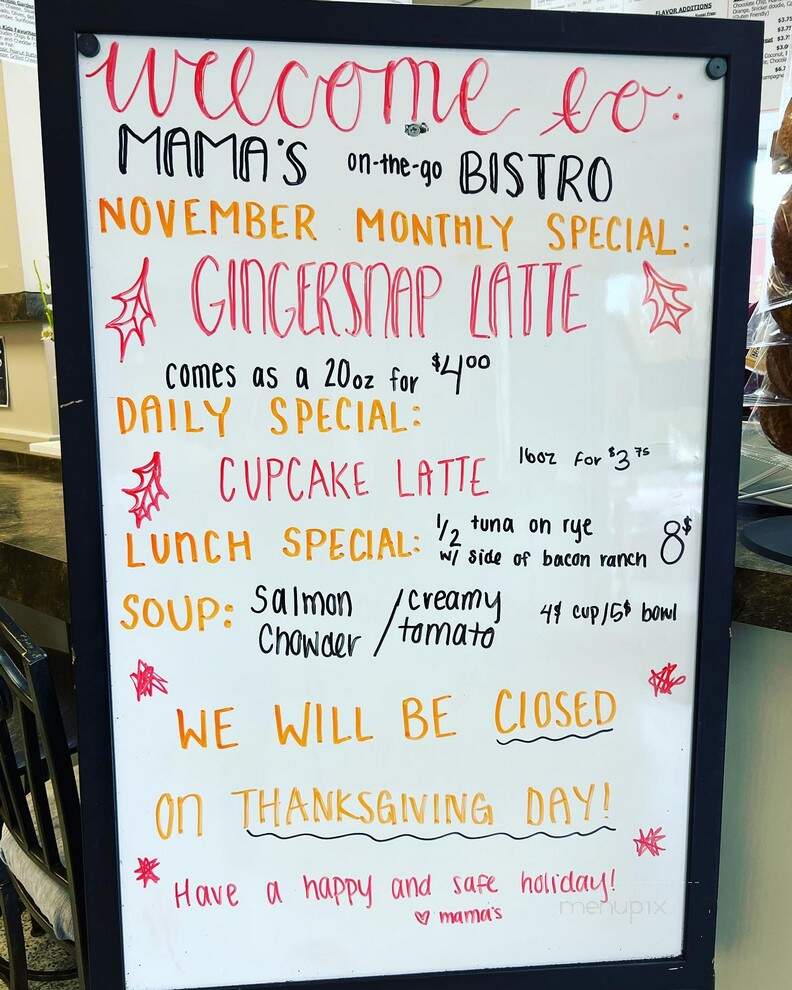 FLAVOR ADDITIONS
welcome to:
MAMA'S on-the-go BISTRO
NOVEMBER MONTHLY SPECIAL:
GINGERSNAP LATTE
comes as a 20oz for $4.00
DAILY SPECIAL:
CUPCAKE LATTE 16oz for $3.75
LUNCH SPECIAL: 1/2 tuna on rye
w/ side of bacon ranch 8$
SOUP: Salmon Chowder / creamy tomato 4$ cup/5$ bowl
WE WILL BE CLOSED
on THANKSGIVING DAY!
Have a happy and safe holiday!
♡ mama's
menupix